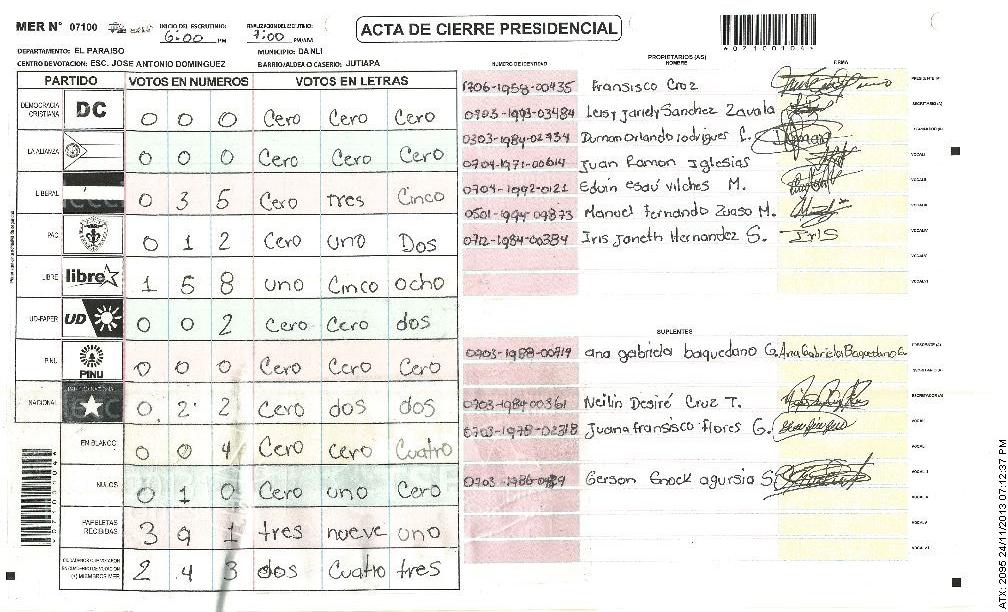 MER N° 07100 INICIO DEL ESCRUTINIO: 6:00 PM FINALIZACION DEL ESCRUTINIO: 7:00 PM/AM
ACTA DE CIERRE PRESIDENCIAL
DEPARTAMENTO: EL PARAISO MUNICIPIO: DANLI
CENTRO DE VOTACION: ESC. JOSE ANTONIO DOMINGUEZ BARRIO/ALDEA O CASERIO: JUTIAPA
PARTIDO VOTOS EN NUMEROS VOTOS EN LETRAS
DEMOCRACIA CRISTIANA DC 0 0 0 Cero Cero Cero
LA ALIANZA 0 0 0 Cero Cero Cero
LIBERAL 0 3 5 Cero tres Cinco
PAC 0 1 2 Cero uno Dos
LIBRE libre 1 5 8 uno Cinco ocho
UD-FAPER UD 0 0 2 Cero Cero dos
PINU PINU 0 0 0 Cero Cero Cero
NACIONAL 0 2 2 Cero dos dos
EN BLANCO 0 0 4 Cero cero Cuatro
NULOS 0 1 0 Cero uno Cero
PAPELETAS RECIBIDAS 3 9 1 tres nueve uno
(+) MIEMBROS MER 2 4 3 dos Cuatro tres
PROPIETARIOS (AS)
NUMERO DE IDENTIDAD NOMBRE FIRMA
1706-1958-00435 Fransisco Cruz PRESIDENTE (A)
0703-1993-03484 Leisy Jariely Sanchez Zavala SECRETARIO (A)
0303-1984-02734 Durman Orlando rodrigues C.
0704-1971-00614 Juan Ramon Iglesias VOCAL I
0704-1992-0121 Eduin esaú vilches M. VOCAL II
0501-1994 09873 Manuel Fernando Zuaso M. VOCAL III
0712-1984-00384 Iris Janeth Hernandez S. Iris VOCAL IV
VOCAL V
VOCAL VI
SUPLENTES
0703-1988-00719 ana gabriela baquedano G. Ana Gabriela Baquedano G. PRESIDENTE (A)
0703-1984-00361 Neilin Desiré Cruz T.
0703-1978-02318 Juana fransisco flores G. VOCAL I
VOCAL II
Gerson Enock agursia S. VOCAL III
VOCAL IV
VOCAL V
VOCAL VI
ATX: 2095 24/11/2013 07:12:37 PM